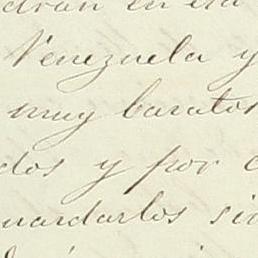 drán en esa
Venezuela y
muy baratos
dos y por
uardarlos si